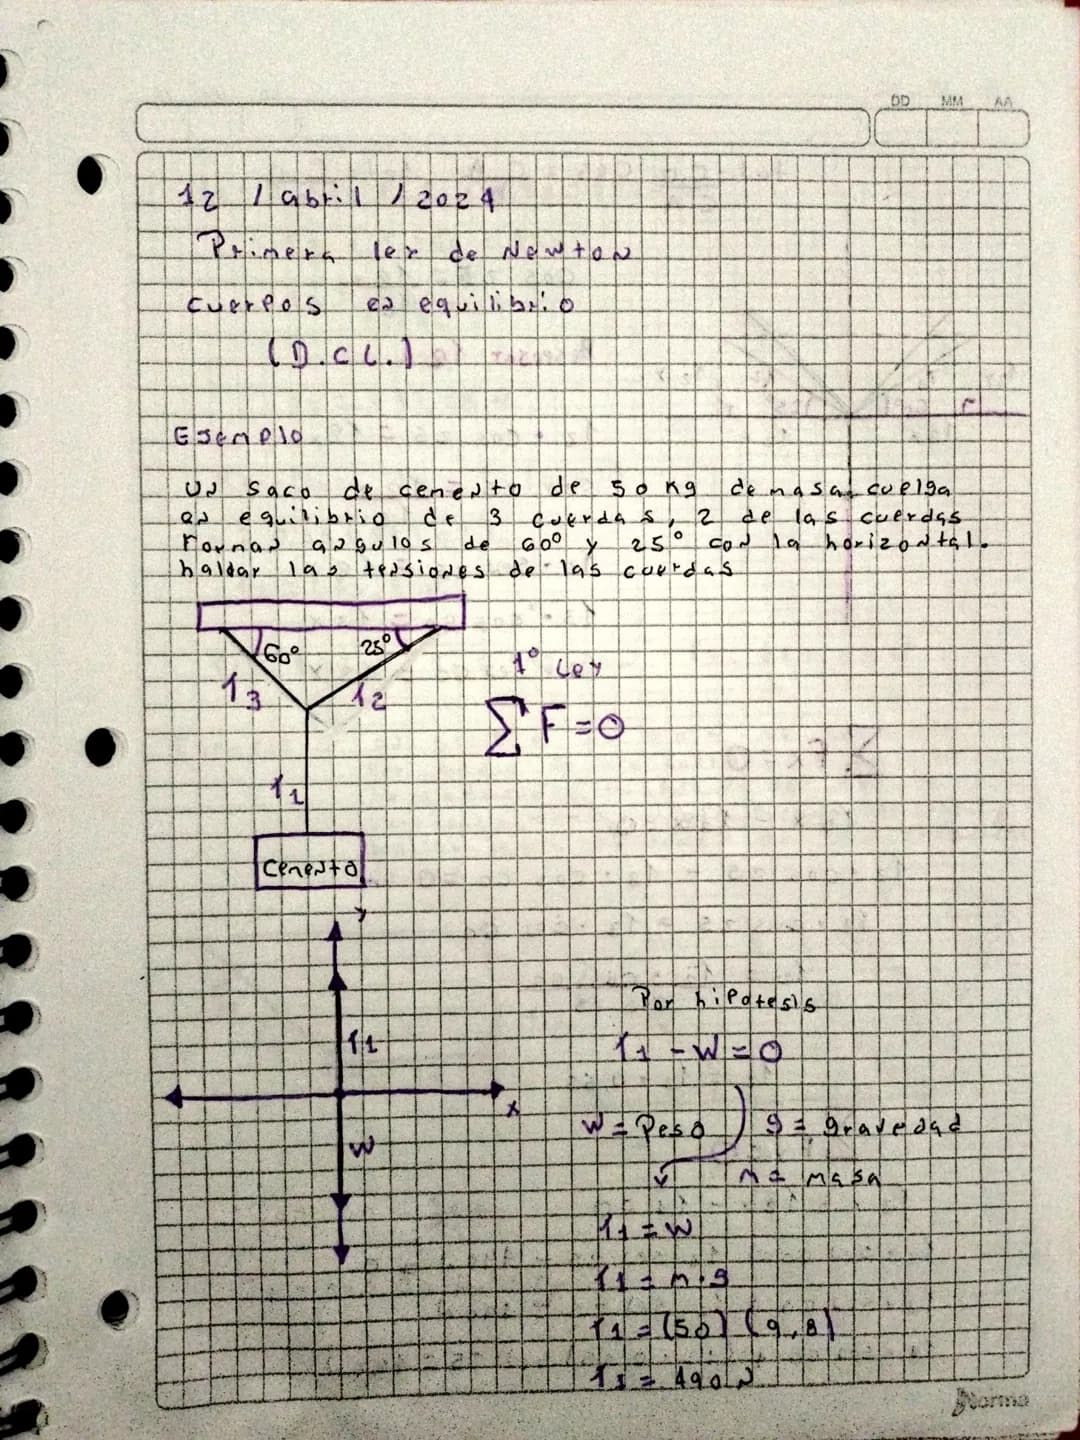 DD MM AA
12 / abril / 2024
Primera ley de Newton
cuerpos en equilibrio
(D.C.L.)
Ejemplo
Un saco de cemento de 50 kg de masa cuelga
en equilibrio de 3 cuerdas, 2 de las cuerdas
forman angulos de 60° y 25° con la horizontal.
hallar las tensiones de las cuerdas
60° 25°
T3 T2
1° Ley
∑ F = 0
T1
Cemento
y
T1
x
W
Por hipotesis
T1 - W = 0
W = Peso g = gravedad
m = masa
T1 = W
T1 = m · g
T1 = (50) (9,8)
T1 = 490 N
Norma